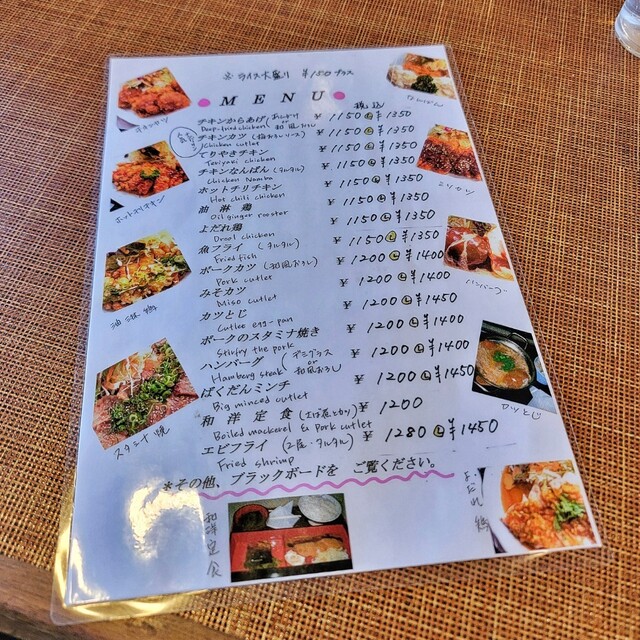 ※ ライス大盛り ¥150プラス
MENU
税込
チキンからあげ(おろし or 和風おろし ¥1150 ¥1350
Deep-fried chicken
チキンカツ(梅おろしソース) ¥1150 ¥1350
Chicken cutlet
てりやきチキン ¥1150 ¥1350
Teriyaki chicken
チキンなんばん(タルタル) ¥1150 ¥1350
Chicken Namba
ホットチリチキン ¥1150 ¥1350
Hot chili chicken
油淋鶏 ¥1150 ¥1350
Oil ginger rooster
よだれ鶏 ¥1150 ¥1350
Drool chicken
魚フライ(タルタル) ¥1150 ¥1350
Fried fish
ポークカツ(和風おろし) ¥1200 ¥1400
Pork cutlet
みそカツ ¥1200 ¥1400
Miso cutlet
カツとじ ¥1200 ¥1450
Cutlet egg-pan
ポークのスタミナ焼き ¥1200 ¥1400
Stirfry the pork
ハンバーグ(デミグラス or 和風おろし ¥1200 ¥1400
Hamberg steak
ばくだんミンチ ¥1200 ¥1450
Big minced cutlet
和洋定食 ¥1200
Boiled mackerel & Pork cutlet
エビフライ(2尾・タルタル) ¥1280 ¥1450
Fried shrimp
*その他、ブラックボードを ご覧ください。
チキンカツ
ホットチリチキン
油淋鶏
スタミナ焼
なんばん
ミソカツ
ハンバーグ
カツとじ
よだれ鶏
和洋定食